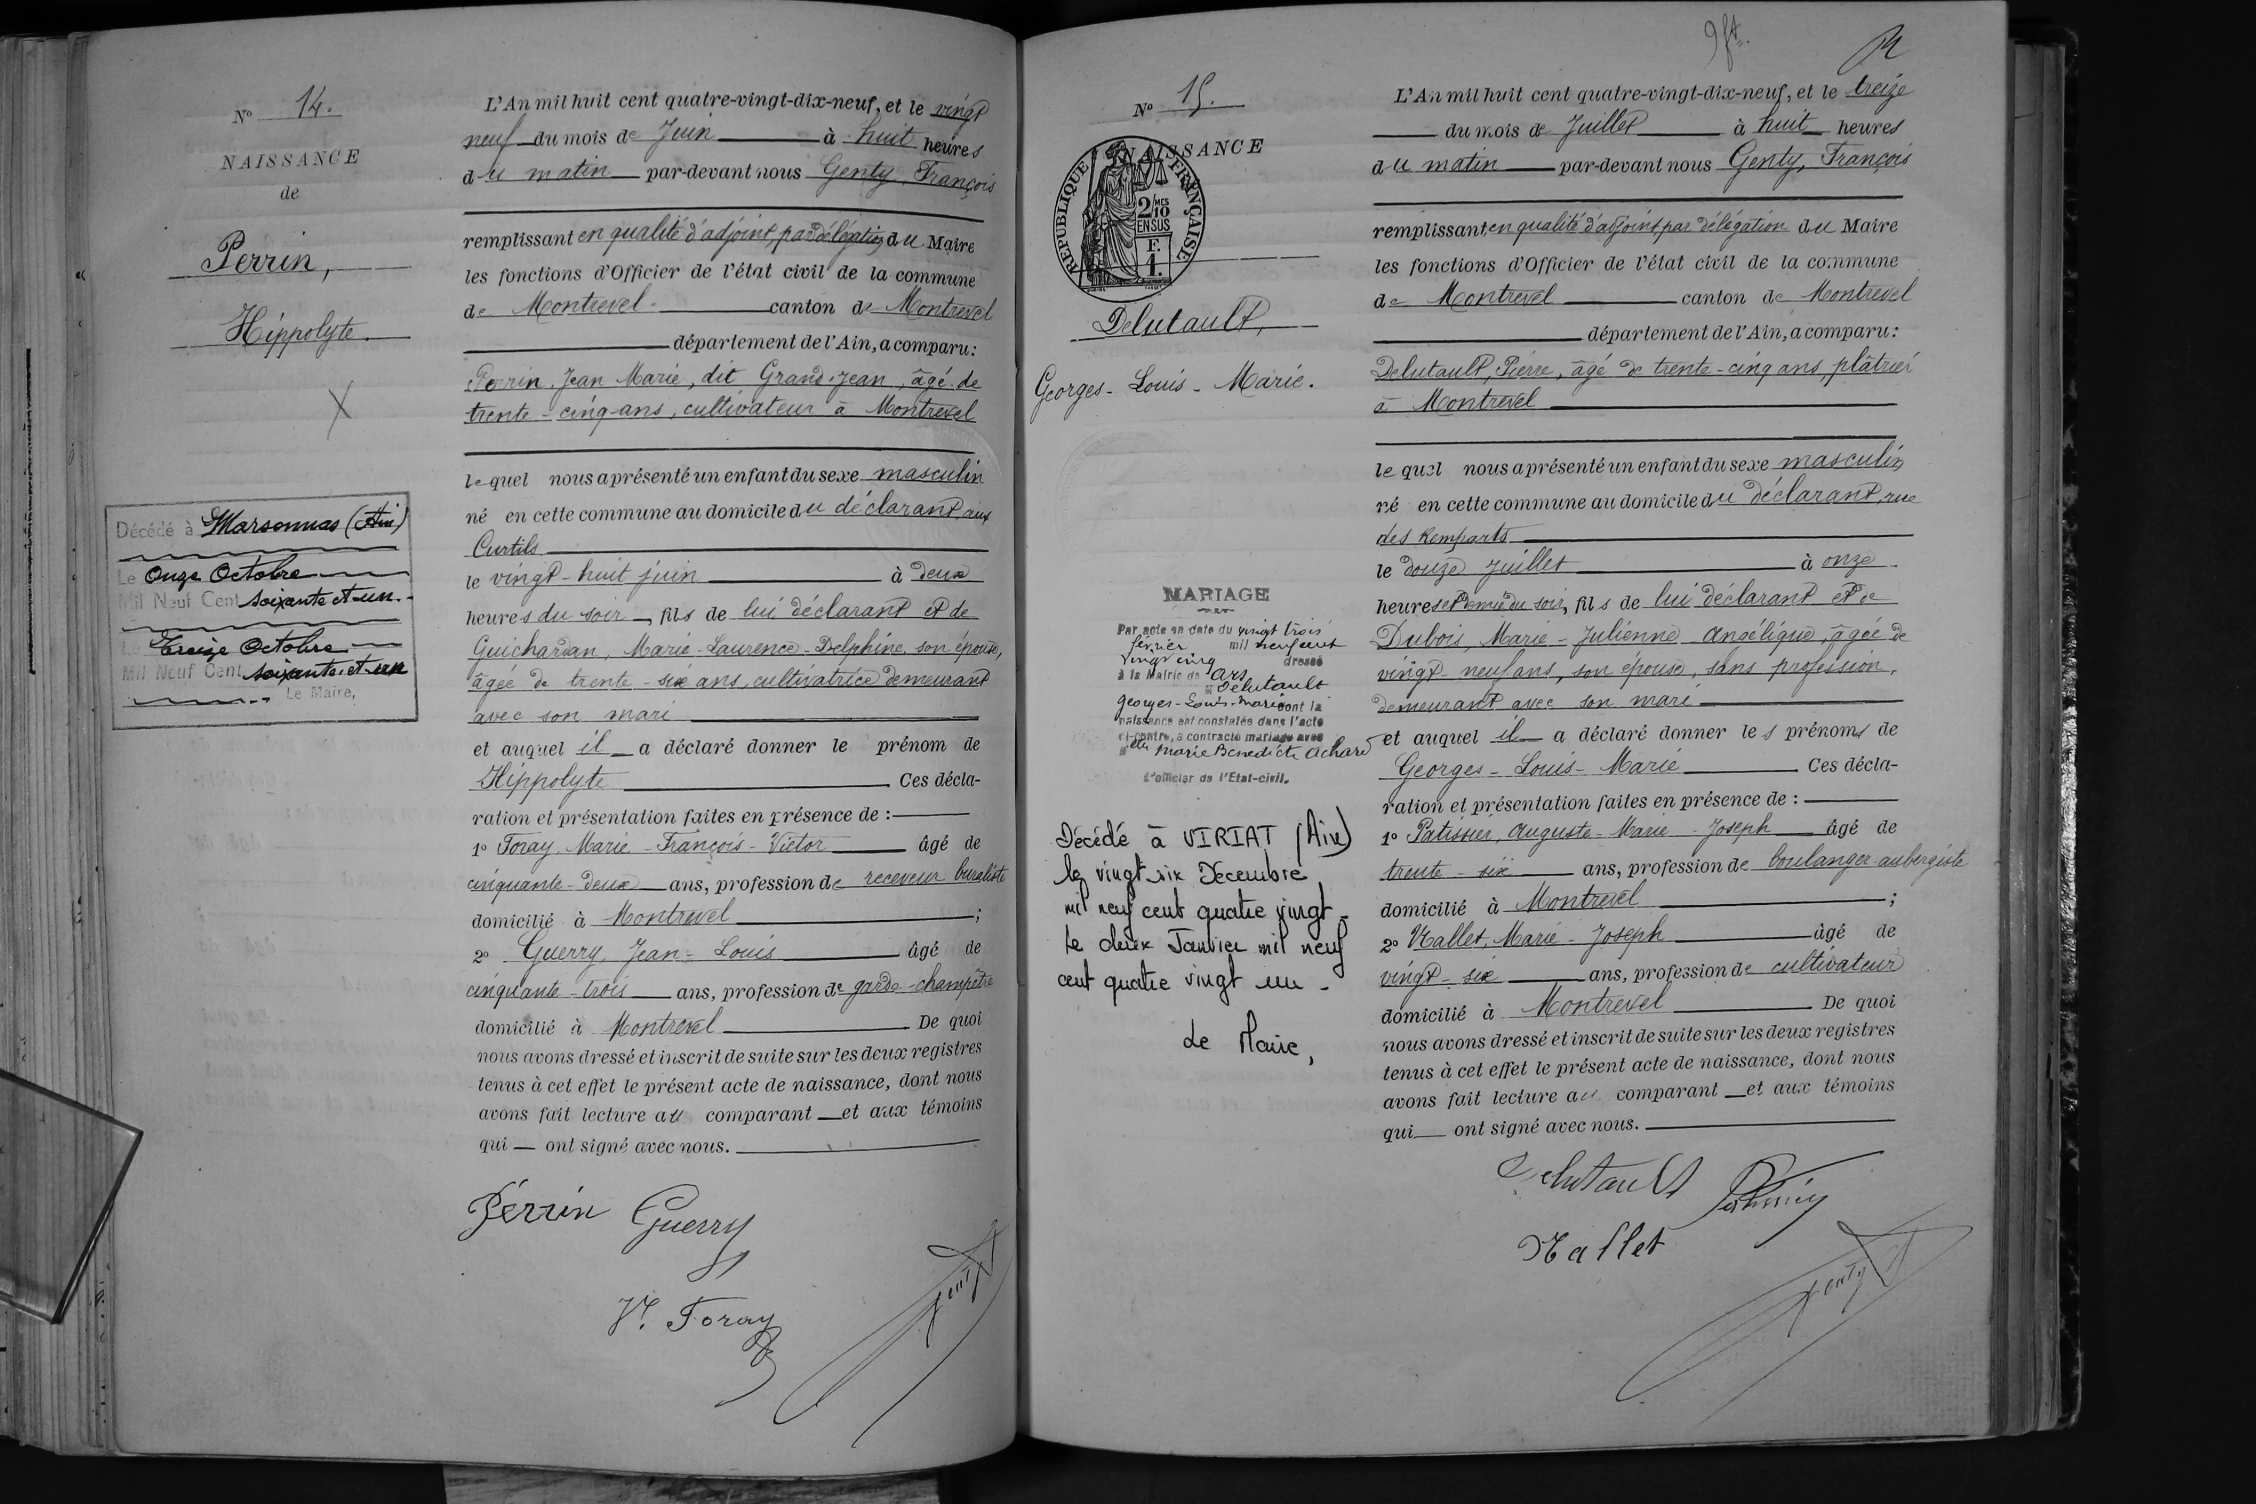 Nº 14.
NAISSANCE
de
Perrin,
Hippolyte.
Décédé à Marsonnas (Ain)
Le Onze Octobre
Mil Neuf Cent soixante et un.-
Le Treize Octobre
Mil Neuf Cent soixante et un
Le Maire,
L'An mil huit cent quatre-vingt-dix-neuf, et le vingt
neuf du mois de Juin à huit heures
du matin par-devant nous Genty, François
remplissant en qualité d'adjoint, par délégation du Maire
les fonctions d'Officier de l'état civil de la commune
de Montrevel canton de Montrevel
département de l'Ain, a comparu:
Perrin Jean Marie, dit Grand-Jean, âgé de
trente-cinq ans, cultivateur à Montrevel
lequel nous a présenté un enfant du sexe masculin
né en cette commune au domicile du déclarant aux
Curtils
le vingt-huit juin à deux
heures du soir, fils de lui déclarant et de
Guichardan, Marie-Laurence-Delphine, son épouse,
âgée de trente-six ans, cultivatrice demeurant
avec son mari
et auquel il a déclaré donner le prénom de
Hippolyte Ces décla-
ration et présentation faites en présence de :
1º Foray, Marie-François-Victor âgé de
cinquante-deux ans, profession de receveur buraliste
domicilié à Montrevel ;
2º Guerry, Jean-Louis âgé de
cinquante-trois ans, profession de garde-champêtre
domicilié à Montrevel De quoi
nous avons dressé et inscrit de suite sur les deux registres
tenus à cet effet le présent acte de naissance, dont nous
avons fait lecture au comparant et aux témoins
qui ont signé avec nous.
Pérrin Guerry
Vr. Foray
Genty
Nº 15.
NAISSANCE
RÉPUBLIQUE FRANÇAISE
2/10 MES
EN SUS
F.
1.
Delutault,
Georges-Louis-Marie.
MARIAGE
Par acte en date du vingt trois
février mil neuf cent
vingt cinq dressé
à la Mairie de Ars
M Delutault
Georges-Louis-Marie dont la
naissance est constatée dans l'acte
ci-contre, a contracté mariage avec
Melle Marie Benedicte Achard
L'officier de l'Etat-civil.
Décédé à VIRIAT (Ain)
le vingt six Decembre
mil neuf cent quatre vingt -
Le deux Janvier mil neuf
cent quatre vingt un -
Le Maire,
L'An mil huit cent quatre-vingt-dix-neuf, et le treize
du mois de Juillet à huit heures
du matin par-devant nous Genty, François
remplissant en qualité d'adjoint par délégation du Maire
les fonctions d'Officier de l'état civil de la commune
de Montrevel canton de Montrevel
département de l'Ain, a comparu:
Delutault, Pierre, âgé de trente-cinq ans, plâtrier
à Montrevel
lequel nous a présenté un enfant du sexe masculin
né en cette commune au domicile du déclarant, rue
des Remparts
le douze Juillet à onze
heures et demie du soir, fils de lui déclarant et de
Dubois, Marie-Julienne Angélique, âgée de
vingt-neuf ans, son épouse, sans profession,
demeurant avec son mari
et auquel il a déclaré donner les prénoms de
Georges-Louis-Marie Ces décla-
ration et présentation faites en présence de :
1º Patissier, Auguste-Marie-Joseph âgé de
trente-six ans, profession de boulanger-aubergiste
domicilié à Montrevel ;
2º Nallet, Marie-Joseph âgé de
vingt-six ans, profession de cultivateur
domicilié à Montrevel De quoi
nous avons dressé et inscrit de suite sur les deux registres
tenus à cet effet le présent acte de naissance, dont nous
avons fait lecture au comparant et aux témoins
qui ont signé avec nous.
Delutault
Nallet
Genty